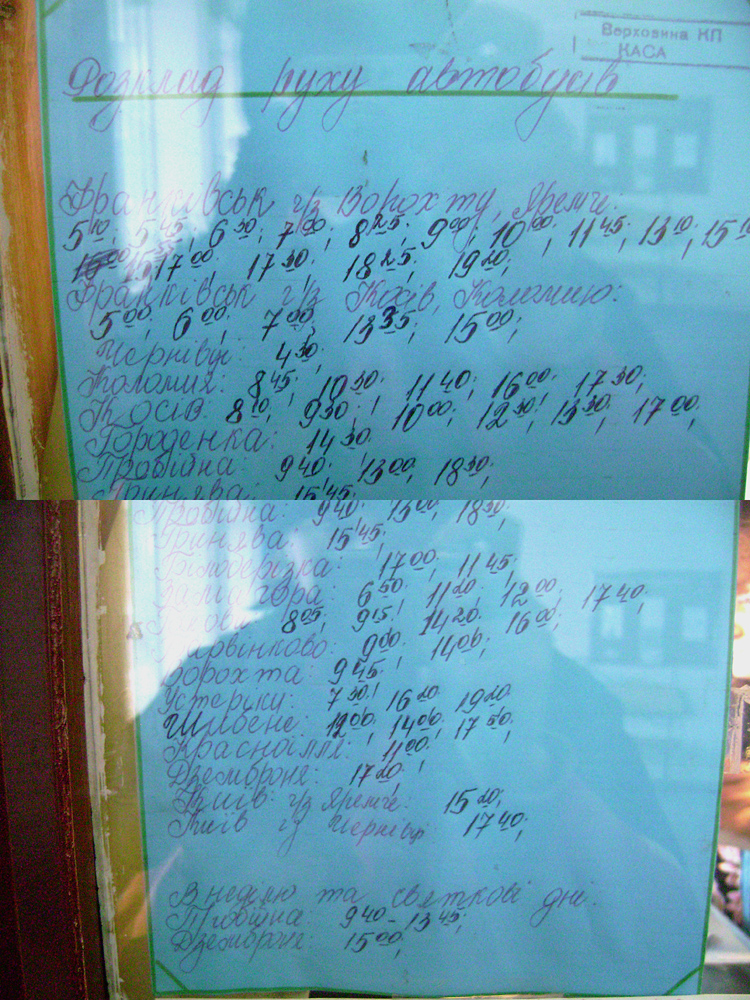 Верховина КП
КАСА
Розклад руху автобусів
Франківськ ч/з Ворохту, Яремче:
5 10; 5 45; 6 30; 7 00; 8 25; 9 00; 10 00; 11 45; 13 10; 15 10
17 00; 17 30; 18 25; 19 20;
Франківськ ч/з Косів, Коломию:
5 00; 6 00; 7 00; 13 35; 15 00;
Чернівці: 4 30;
Коломия: 8 45; 10 30; 11 40; 16 00; 17 30;
Косів: 8 10; 9 30; 10 00; 12 30; 13 30; 17 00;
Городенка: 14 30
Пробійна: 9 40; 13 00; 18 30;
Гринява: 15 45;
Пробійна: 9 40; 13 00; 18 30;
Гринява: 15 45;
17 00; 11 45;
6 50; 11 20; 12 00; 17 40;
8 05; 9 15; 14 20; 16 00;
9 00; 14 00;
Ворохта: 9 45
Устеріки: 7 30; 16 20; 19 20
12 00; 14 00; 17 50;
Краснаілля: 11 00;
Дземброня: 17 20;
Київ ч/з Яремче: 15 20;
Київ ч/з Чернівці 17 40;
В неділю та святкові дні:
Пробійна: 9 40 - 13 45;
Дземброня: 15 00;